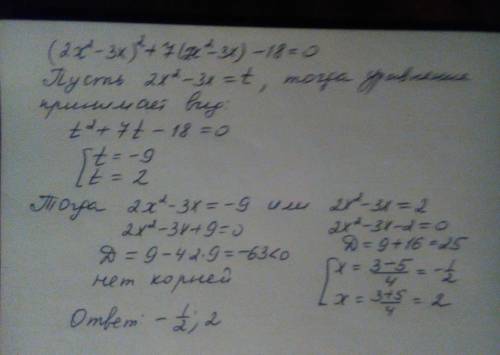 (2x²-3x)²+7(2x²-3x)-18=0
Пусть 2x²-3x=t, тогда уравнение
принимает вид:
t²+7t-18=0
[t=-9
[t=2
Тогда 2x²-3x=-9 или 2x²-3x=2
2x²-3x+9=0 2x²-3x-2=0
D=9-4·2·9=-63<0 D=9+16=25
нет корней [x=\frac{3-5}{4}=-\frac{1}{2}
[x=\frac{3+5}{4}=2
Ответ: -\frac{1}{2}; 2